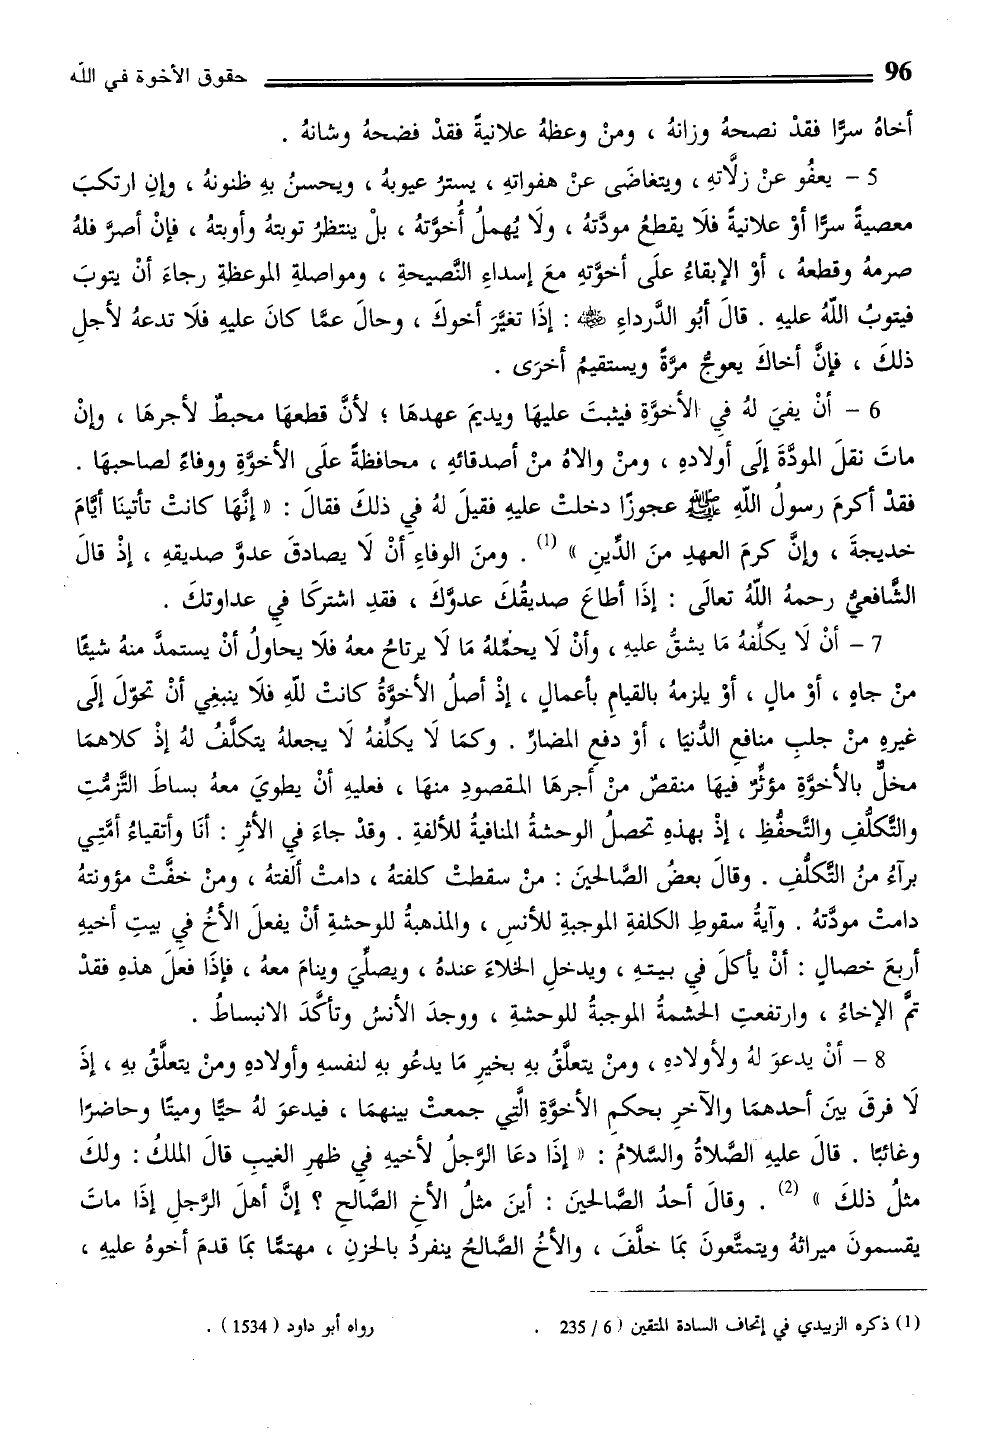 96 حقوق الأخوة في اللّه
أخاهُ سرًّا فقدْ نصحهُ وزانهُ ، ومنْ وعظهُ علانيةً فقدْ فضحهُ وشانهُ .
5 – يعفُو عنْ زلَّاتهِ ، ويتغاضَى عنْ هفواتهِ ، يسترُ عيوبهُ ، ويحسنُ بهِ ظنونهُ ، وإنِ ارتكبَ
معصيةً سرًّا أوْ علانيةً فلَا يقطعُ مودَّتهُ ، ولَا يُهملُ أُخوَّتهُ ، بلْ ينتظرُ توبتهُ وأوبتهُ ، فإنْ أصرَّ فلهُ
صرمهُ وقطعهُ ، أوْ الإبقاءُ علَى أخوَّتهِ معَ إسداءِ النَّصيحةِ ، ومواصلةِ الموعظةِ رجاءَ أنْ يتوبَ
فيتوبُ اللّهُ عليهِ . قالَ أبُو الدَّرداءِ ﵁ : إذَا تغيَّرَ أخوكَ ، وحالَ عمَّا كانَ عليهِ فلَا تدعهُ لأجلِ
ذلكَ ، فإنَّ أخاكَ يعوجُّ مرَّةً ويستقيمُ أخرَى .
6 – أنْ يفيَ لهُ في الأخوَّةِ فيثبتَ عليهَا ويديمَ عهدهَا ؛ لأنَّ قطعهَا محبطٌ لأجرهَا ، وإنْ
ماتَ نقلَ المودَّةَ إلَى أولادهِ ، ومنْ والاهُ منْ أصدقائهِ ، محافظةً علَى الأخوَّةِ ووفاءً لصاحبهَا .
فقدْ أكرمَ رسولُ اللّهِ ﷺ عجوزًا دخلتْ عليهِ فقيلَ لهُ في ذلكَ فقالَ : « إنَّهَا كانتْ تأتينَا أيَّامَ
خديجةَ ، وإنَّ كرمَ العهدِ منَ الدِّينِ » (1) . ومنَ الوفاءِ أنْ لَا يصادقَ عدوَّ صديقهِ ، إذْ قالَ
الشَّافعيُّ رحمهُ اللّهُ تعالَى : إذَا أطاعَ صديقُكَ عدوَّكَ ، فقدِ اشتركَا في عداوتكَ .
7 – أنْ لَا يكلِّفهُ مَا يشقُّ عليهِ ، وأنْ لَا يحمِّلهُ مَا لَا يرتاحُ معهُ فلَا يحاولُ أنْ يستمدَّ منهُ شيئًا
منْ جاهٍ ، أوْ مالٍ ، أوْ يلزمهُ بالقيامِ بأعمالٍ ، إذْ أصلُ الأخوَّةُ كانتْ للّهِ فلَا ينبغِي أنْ تحوّلَ إلَى
غيرهِ منْ جلبِ منافعِ الدُّنيَا ، أوْ دفعِ المضارِّ . وكمَا لَا يكلِّفهُ لَا يجعلهُ يتكلَّفُ لهُ إذْ كلاهمَا
مخلٌّ بالأخوَّةِ مؤثِّرٌ فيهَا منقصٌ منْ أجرهَا المقصودِ منهَا ، فعليهِ أنْ يطويَ معهُ بساطَ التَّزمُّتِ
والتَّكلُّفِ والتَّحفُّظِ ، إذْ بهذهِ تحصلُ الوحشةُ المنافيةُ للألفةِ . وقدْ جاءَ في الأثرِ : أنَا وأتقياءُ أمَّتِي
برآءُ منُ التَّكلُّفِ . وقالَ بعضُ الصَّالحينَ : منْ سقطتْ كلفتهُ ، دامتْ ألفتهُ ، ومنْ خفَّتْ مؤونتهُ
دامتْ مودَّتهُ . وآيةُ سقوطِ الكلفةِ الموجبةِ للأنسِ ، والمذهبةُ للوحشةِ أنْ يفعلَ الأخُ في بيتِ أخيهِ
أربعَ خصالٍ : أنْ يأكلَ في بيتهِ ، ويدخلِ الخلاءَ عندهُ ، ويصلِّيَ وينامَ معهُ ، فإذَا فعلَ هذهِ فقدْ
تمَّ الإخاءُ ، وارتفعتِ الحشمةُ الموجبةُ للوحشةِ ، ووجدَ الأنسُ وتأكَّدَ الانبساطُ .
8 – أنْ يدعوَ لهُ ولأولادهِ ، ومنْ يتعلَّقُ بهِ بخيرِ مَا يدعُو بهِ لنفسهِ وأولادهِ ومنْ يتعلَّقُ بهِ ، إذَ
لَا فرقَ بينَ أحدهمَا والآخرِ بحكمِ الأخوَّةِ الَّتِي جمعتْ بينهمَا ، فيدعوَ لهُ حيًّا وميتًا وحاضرًا
وغائبًا . قالَ عليهِ الصَّلاةُ والسَّلامُ : « إذَا دعَا الرَّجلُ لأخيهِ في ظهرِ الغيبِ قالَ الملكُ : ولكَ
مثلُ ذلكَ » (2) . وقالَ أحدُ الصَّالحينَ : أينَ مثلُ الأخِ الصَّالحِ ؟ إنَّ أهلَ الرَّجلِ إذَا ماتَ
يقسمونَ ميراثهُ ويتمتَّعونَ بمَا خلَّفَ ، والأخُ الصَّالحُ ينفردُ بالحزنِ ، مهتمًّا بمَا قدمَ أخوهُ عليهِ ،
(1) ذكره الزبيدي في إتحاف السادة المتقين ( 6 / 235 . رواه أبو داود ( 1534 ) .